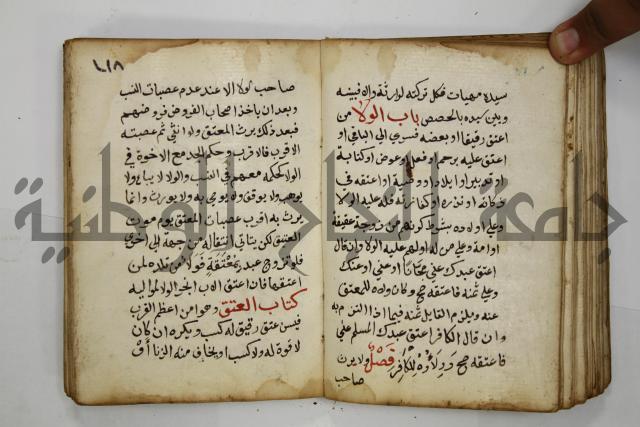 سيده مهيات فكل تركته لوارثه والا فبينه
وبين سيده بالحصص باب الولا من
اعتق رقيقا او بعضه فسرى الى الباقي او
اعتق عليه برحم او فعل او عوض او كتابة
او تدبير او ايلاد او وصية او اعتقه في
زكاته او نذره او كفارته فله عليه الولا
وعلى اولاده بشرط كونهم من زوجة عتيقة
او امة وعلى من له او لهم عليه الولا وان قال
اعتق عبدك عني مجانا او عني او عنك
وعلي ثمنه فاعتقه صح وكان ولاه للمعتق
عنه ويلزم القايل ثمنه فيما اذا التزم به
وان قال الكافر اعتق عبدك المسلم عني
فاعتقه صح وولاؤه للكافر فصل ولا يرث
صاحب
١٠٨
صاحب الولا الا عند عدم عصبات النسب
وبعد ان ياخذ اصحاب الفروض فروضهم
فبعد ذلك يرث المعتق ولو انثى ثم عصبته
الاقرب فالاقرب وحكم الجد مع الاخوة في
الولا كحكمه معهم في النسب والولا لا يباع ولا
يوهب ولا يوقف ولا يوصى به ولا يورث وانما
يرث به اقرب عصبات المعتق يوم موت
العتيق لكن يتاتى انتقاله من جهة الى اخرى
فلو تزوج عبد بمعتقة فولا من تلده لمن
اعتقها فان اعتق الاب انجر الولا لمواليه
كتاب العتق وهو من اعظم القرب
فيسن عتق رقيق له كسب ويكره ان كان
لا قوة له ولا كسب او يخاف منه الزنا او
جامعة النجاح الوطنية